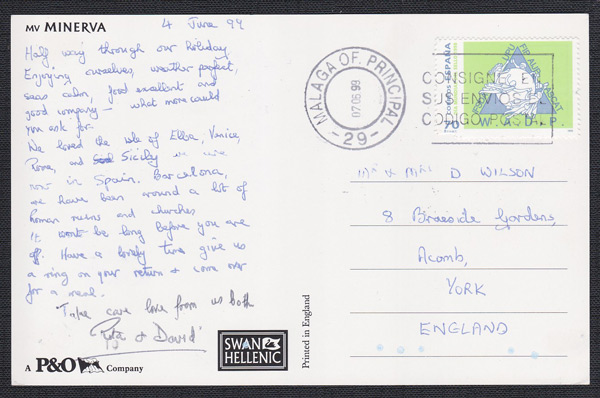 MV MINERVA
4 June 99
Half way through our holiday.
Enjoying ourselves, weather perfect,
seas calm, food excellent and
good company – what more could
you ask for.
We loved the isle of Elba, Venice,
Rome, and Sicily we are
now in Spain. Barcelona,
we have been around a lot of
Roman ruins and churches
it wont be long before you are
off. Have a lovely time give us
a ring on your return & come over
for a meal.
Take care love from us both
Rita & David
A P&O Company
SWAN
HELLENIC
Printed in England
MALAGA OF. PRINCIPAL
07 06 99
- 29 -
CONSIGNE EN
SUS ENVIOS EL
CODIGO POSTAL
ESPAÑA
CORREOS
70
UPU
FIP
AIJP
ASCAT
W A D P
Mr & Mrs D WILSON
8 Braeside Gardens,
Acomb,
YORK
ENGLAND